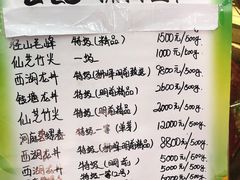 径山毛峰 特级(精品) 1500元/500g.
仙芝竹尖 一级 1000元/500g.
西湖龙井 特级(狮峰明前精品) 9800元/500g.
钱塘龙井 特级(明前精品) 2600元/500g.
仙芝竹尖 特级(明前精品) 2000元/500g.
洞庭碧螺春 特级一等 12800元/500g.
西湖龙井 特级(狮峰明前精品) 8800元/500g.
西湖龙井 特级(明前) 5000元/500g.
特级 5000元/500g.